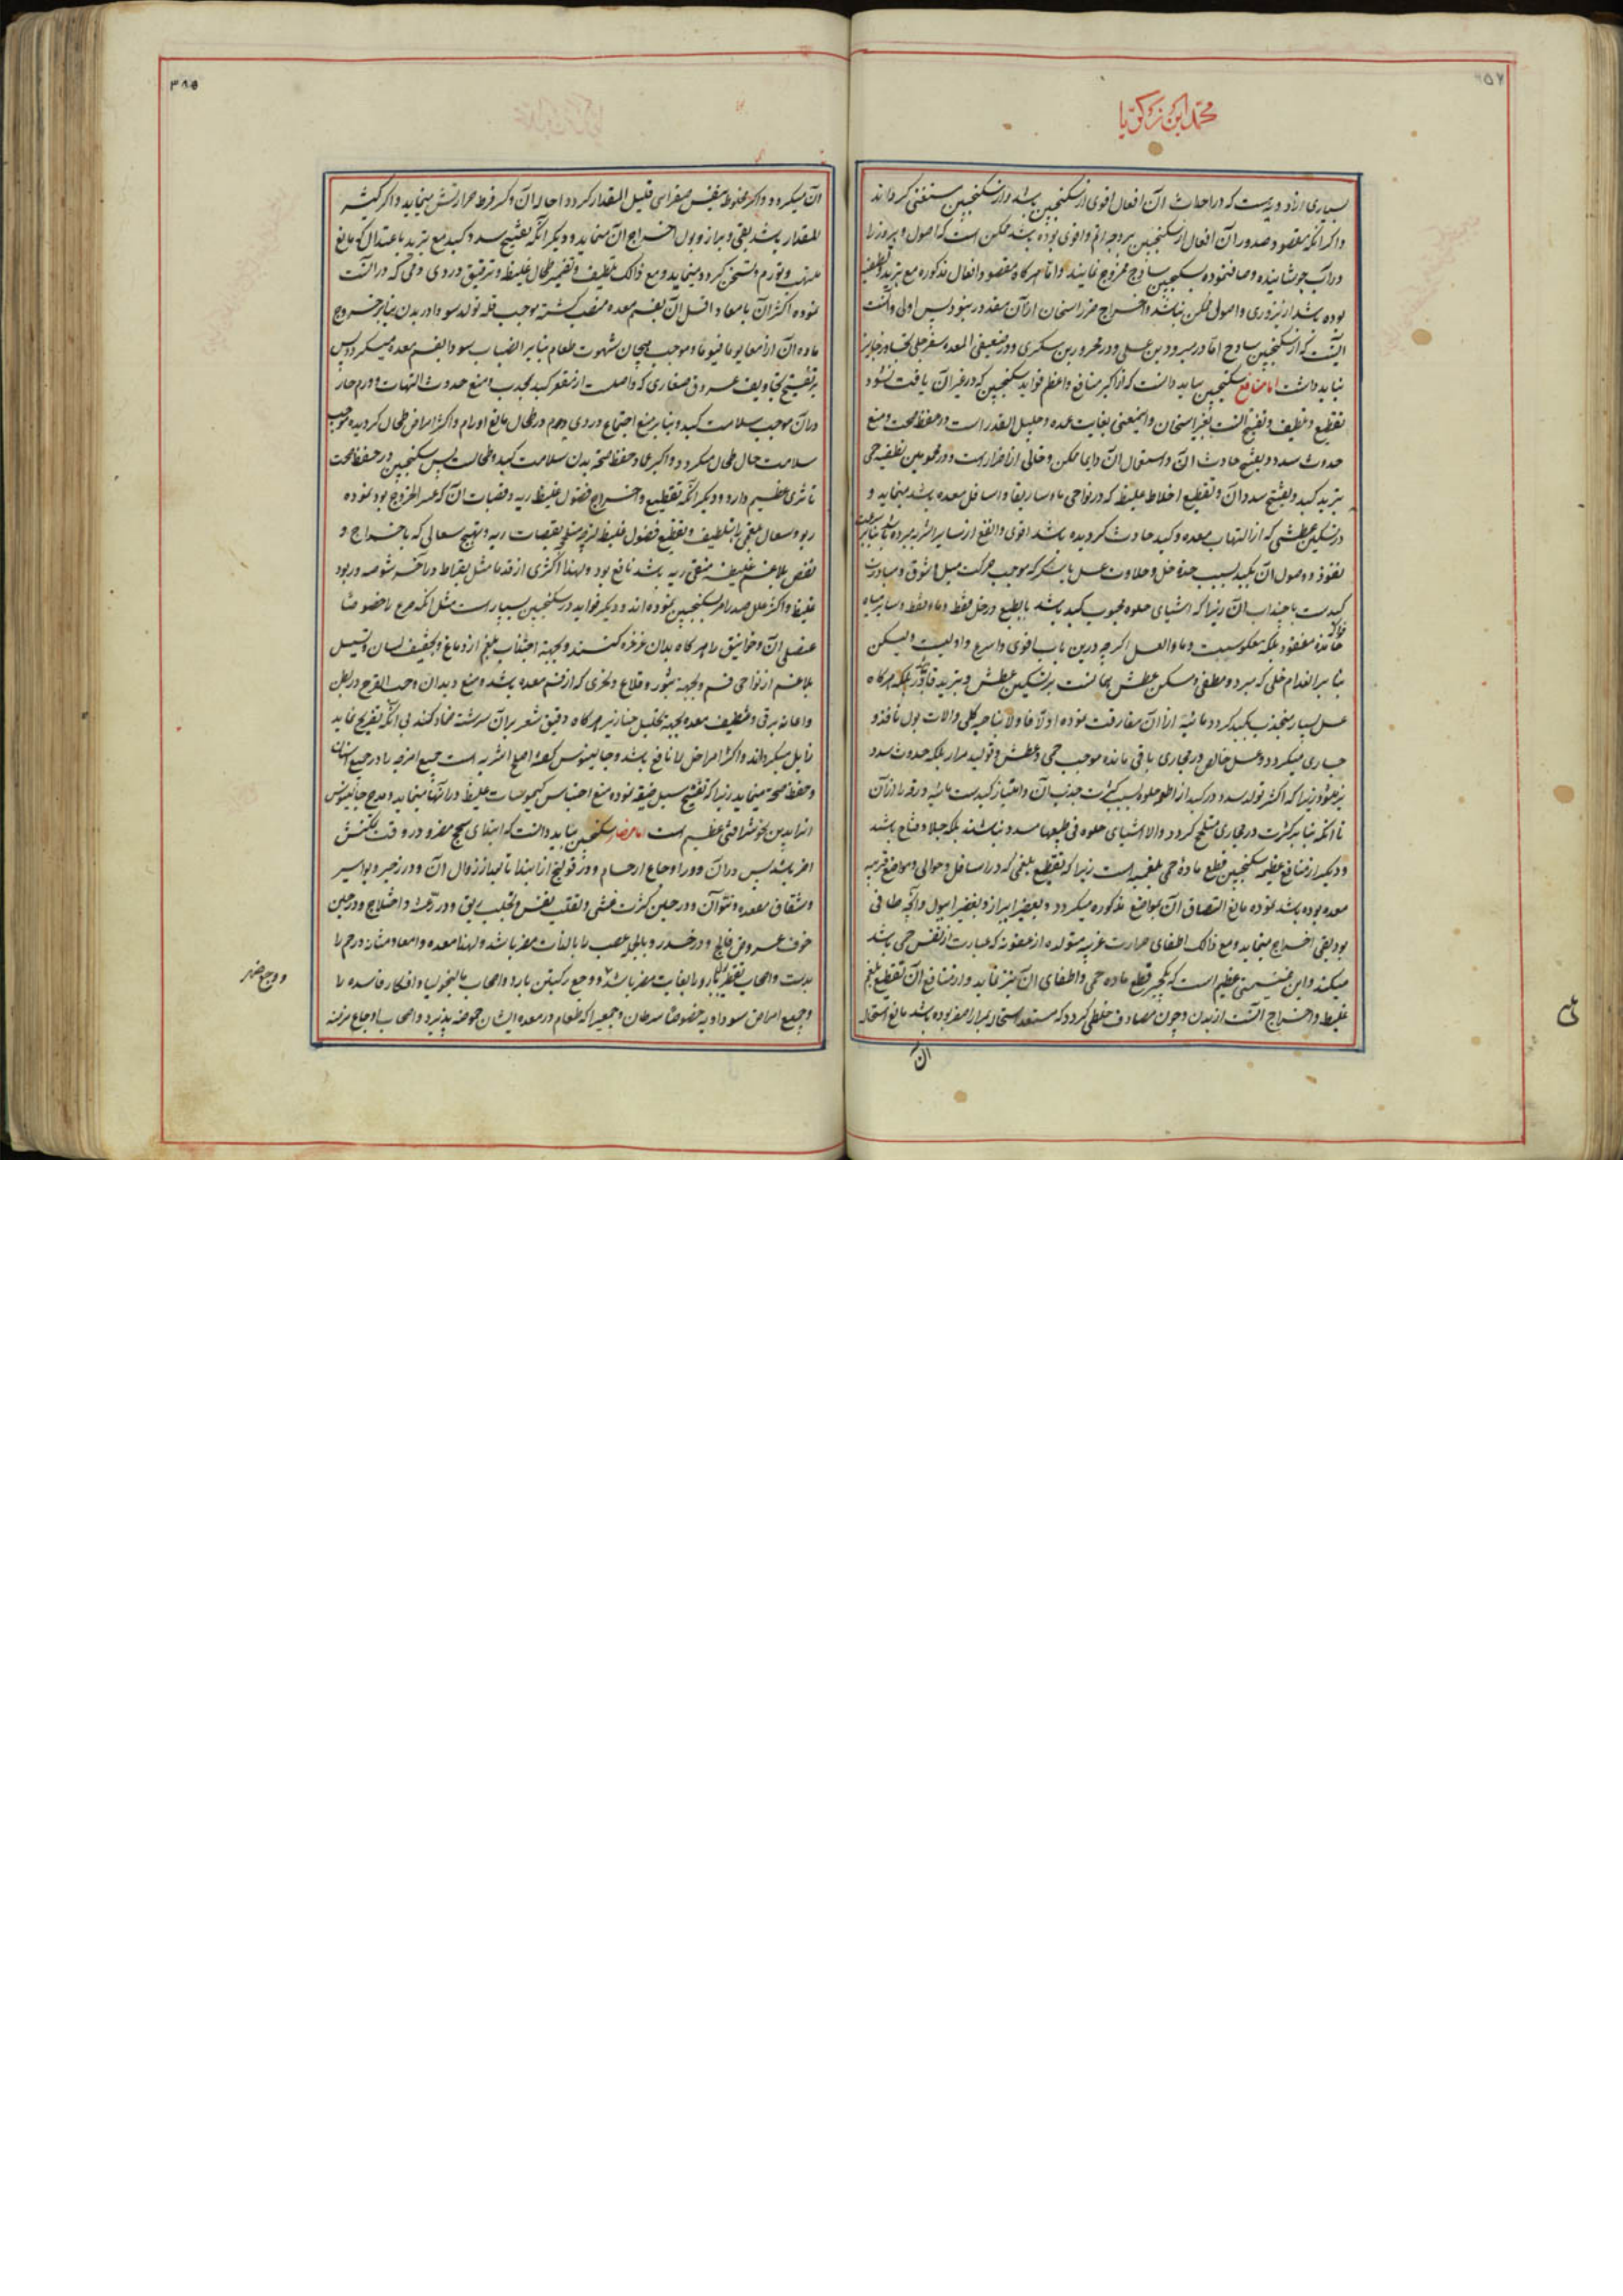 محمد ابن زکریا
بسیاری از ادویه است که در احداث آن افعال اقوی از سکنجبین باشد و از سکنجبین مستغنی کرداند
واکر انکه مقصود صدور آن افعال از سکنجبین بر وجه اتم واقوی بوده باشد ممکن است که اصول و بزور را
در آب جوشانیده وصاف نموده بسکنجبین ساذج ممزوج نمایند واما هرکاه مقصود افعال مذکوره مع تبرید وتطفیه
بوده باشد از بزوری واصولی ممکن نباشد واخراج ضرر اسخان از آن مقدور نبود پس اولی والیق
آنست که از سکنجبین ساذج
نباید داشت اما منافع سکنجبین بباید دانست که از اکبر منافع واعظم فواید سکنجبین که در غیر آن یافت نشود
تقطیع وتلطیف وتفتیح آنست بغیر اسخان واینمعنی بغایت عمده وجلیل القدر است در حفظ صحت ومنع
حدوث سدد وتفتیح حادث آن واستعمال آن دایما ممکن وخالی از اضرار است ودر محمومین تطفیه حمی
تبرید کبد وتفتیح سدد آن وتقطیع اخلاط غلیظه که در نواحی ماساریقا واسافل معده باشد مینماید و
در تسکین عطشی که از التهاب معده وکبد حادث کردیده باشد اقوی وانفع از سایر اشربه مبرده باشد
نفوذ ووصول آن بکبد بسبب حدة خل وحلاوت عسل یا شکر که موجب حرکت میل
کبدست باجتذاب آن زیرا که اشیای حلوه محبوب کبد باشد بالطبع ودر خل فقط وماء فقط وسایر میاه
فواکه
حامضه مفقود بلکه معکوسیست وماء العسل اکرچه درین باب اقوی واسرع واولیست ولیکن
بنابر انعدام خلی که مبرد ومطفی ومسکن عطش بر تسکین عطش وتبرید قادر بلکه هرکاه
عسل بسیار منجذب بکبد کردد مائیه از آن مفارقت نموده اولا فاولا بناحیه کلی والات بول نافذ و
جاری میکردد وعسل خالص در مجاری باقی مانده موجب حمی وعطش وتولید مرار بلکه حدوث سدد
نیز شود زیرا که اکثر تولد سدد در کبد از اطعمه حلوه بسبب کثرت جذب آن
تا انکه بنابر کثرت در مجاری کردد والا اشیای حلوه فی طبعها مسدد نباشند بلکه جلا وفتاح باشد
ودیکر از منافع عظیمه سکنجبین قطع مادۀ حمی بلغمیه است زیرا که تقطیع بلغمی که در اسافل وحوالی ومواضع قریبه
معده بوده باشد نموده مانع التصاق آن بمواضع مذکوره میکردد وبعضی را ببراز وبعضی را ببول وانچه طافی
بود بقی اخراج مینماید ومع ذالک اطفای حرارت غریبه متولده از عفونه که عبارت از نفس حمی باشد
میکند واین غنیمتی عظیم است که یکچیز قطع ماده حمی واطفای آن نیز نماید واز منافع آن تقطیع بلغم
غلیظ واخراج آنست از بدن وچون مصادف خلطی کردد که مستعد استحاله بمرار اصفر بوده باشد مانع استحاله
آن
٣٨۵
آن میکردد واکر مخلوط بنفس صفرای قلیل المقدار کردد احاله آن وکسر فرط حرارتش مینماید واکر کثیر
المقدار باشد بقی وبراز وبول اخراج آن مینماید ودیکر آنکه تفتیح سدد کبد مع تبرید باعتدال که مانع
تلهب وتورم وتسخن کردد مینماید ومع ذالک تلطیف وتقطیع طحال غلیظ وترقیق دردی دمی که در آنست
نموده اکثر آن بامعا واقل آن بفم معده منصب کشته موجب قلة تولد سودا در بدن بنابر خروج
ماده آن از امعا یوما فیوما وموجب هیجان شهوت طعام بنابر انصباب سودا بفم معده میکردد پس
بر تفتیح تجاویف عروق صغاری که واصلست از مقعر کبد بمحدب ومنع حدوث التهاب وورم حار
در آن موجب سلامت کبد وبنابر منع اجتماع دردی دم در طحال مانع اورام واکثر امراض طحال کردیده موجب
سلامت حال طحال میکردد واکبر عماد حفظ صحة بدن سلامت کبد وطحالست پس سکنجبین در حفظ صحت
تاثری عظیم دارد ودیکر آنکه تقطیع واخراج فضول غلیظه ریه وقصبات آن که عسر الخروج بود نموده
ربو وسعال بلغمی را بتلطیف وتقطیع فضول غلیظه لزجه بقصبات ریه وتهییج سعالی که باخراج و
نفض بلاغم غلیظه منقی ریه باشد نافع بود ولهذا اکثری از قدما مثل بقراط در آخر شوصه وربو
غلیظ واکثر علل صدر امر بسکنجبین نموده اند ودیکر فواید در سکنجبین بسیار است مثل آنکه صرع را خصوصا
عنصلی آن وخوانیق را هرکاه بدان غرغره کنند وبجهة اجتذاب بلغم از دماغ وتجفیف لسان وتسیل
بلاغم از نواحی فم وبجهة بثور وقلاع وبخری که از فم معده باشد ومنع دیدان وحب القرع در بطن
واعانه بر قی وتنظیف معده بجهة تحلیل خنازیر هرکاه دقیق شعیر بر آن سرشته ضماد کنند بی انکه تقریح نماید
زایل میکرداند واکثر امراض را نافع باشد وجالینوس کفته اصلح اشربه است جمیع امزجه را در جمیع اسنان
وحفظ صحة مینماید زیرا که تفتیح سبل ضیقه نموده منع احتباس کیموسات غلیظ در آنها مینماید ومدح جالینوس
انرا بدین نحو شرافتی عظیم است اما مضار سکنجبین بباید دانست که اشیای سحج مضر ودر وقت بکنش
اضر باشد پس در آن ودر اوجاع ارحام ودر قولنج از ابتدا تا بعد از زوال آن ودر زحیر وبواسیر
وشقاق مقعده ونتو آن ودر حین کثرت غشی وتقلب نفس وتحلب ریق ودر رعشه واختلاج ودر حین
خوف عروض فالج ودر خدر وبالجمله عصب را بالذات مضر باشد ولهذا معده وامعا ومثانه ورحم را
بدست واصحاب تقطیر بول را بالغایت مضر باشد ووجع رکبتین بارد واصحاب مالیخولیا وافکار فاسده را
وجمیع امراض سوداویه خصوصا سرطان وجمعی را که طعام در معده ایشان حموضه پذیرد واصحاب اوجاع مزمنه
ووجع ظهر